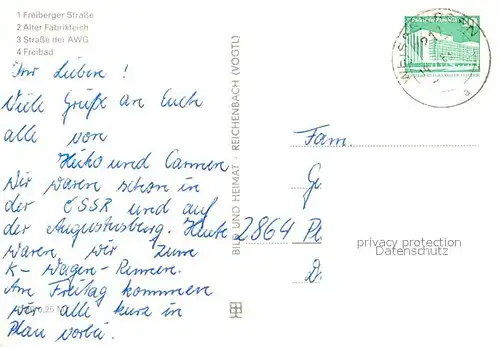 1 Freiberger Straße
2 Alter Fabrikteich
3 Straße der AWG
4 Freibad
Ihr Lieben!
Viele Grüße an Euch
alle von
Heiko und Carmen
Wir waren schon in
der CSSR und auf
der Augustusburg. Heute
waren wir zum
K-Wagen-Rennen.
Am Freitag kommen
wir alle kurz in
Plau vorbei.
0,25 M
BILD UND HEIMAT · REICHENBACH (VOGTL)
Fam.
G
2864 Pl
D
privacy protection
Datenschutz